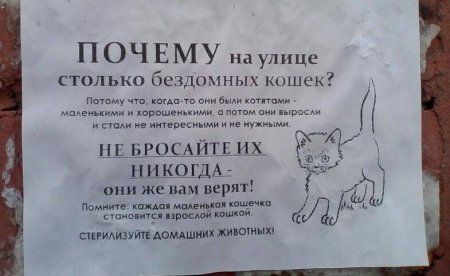 ПОЧЕМУ на улице
столько бездомных кошек?
Потому что, когда-то они были котятами -
маленькими и хорошенькими, а потом они выросли
и стали не интересными и не нужными.
НЕ БРОСАЙТЕ ИХ
НИКОГДА -
они же вам верят!
Помните: каждая маленькая кошечка
становится взрослой кошкой.
СТЕРИЛИЗУЙТЕ ДОМАШНИХ ЖИВОТНЫХ!